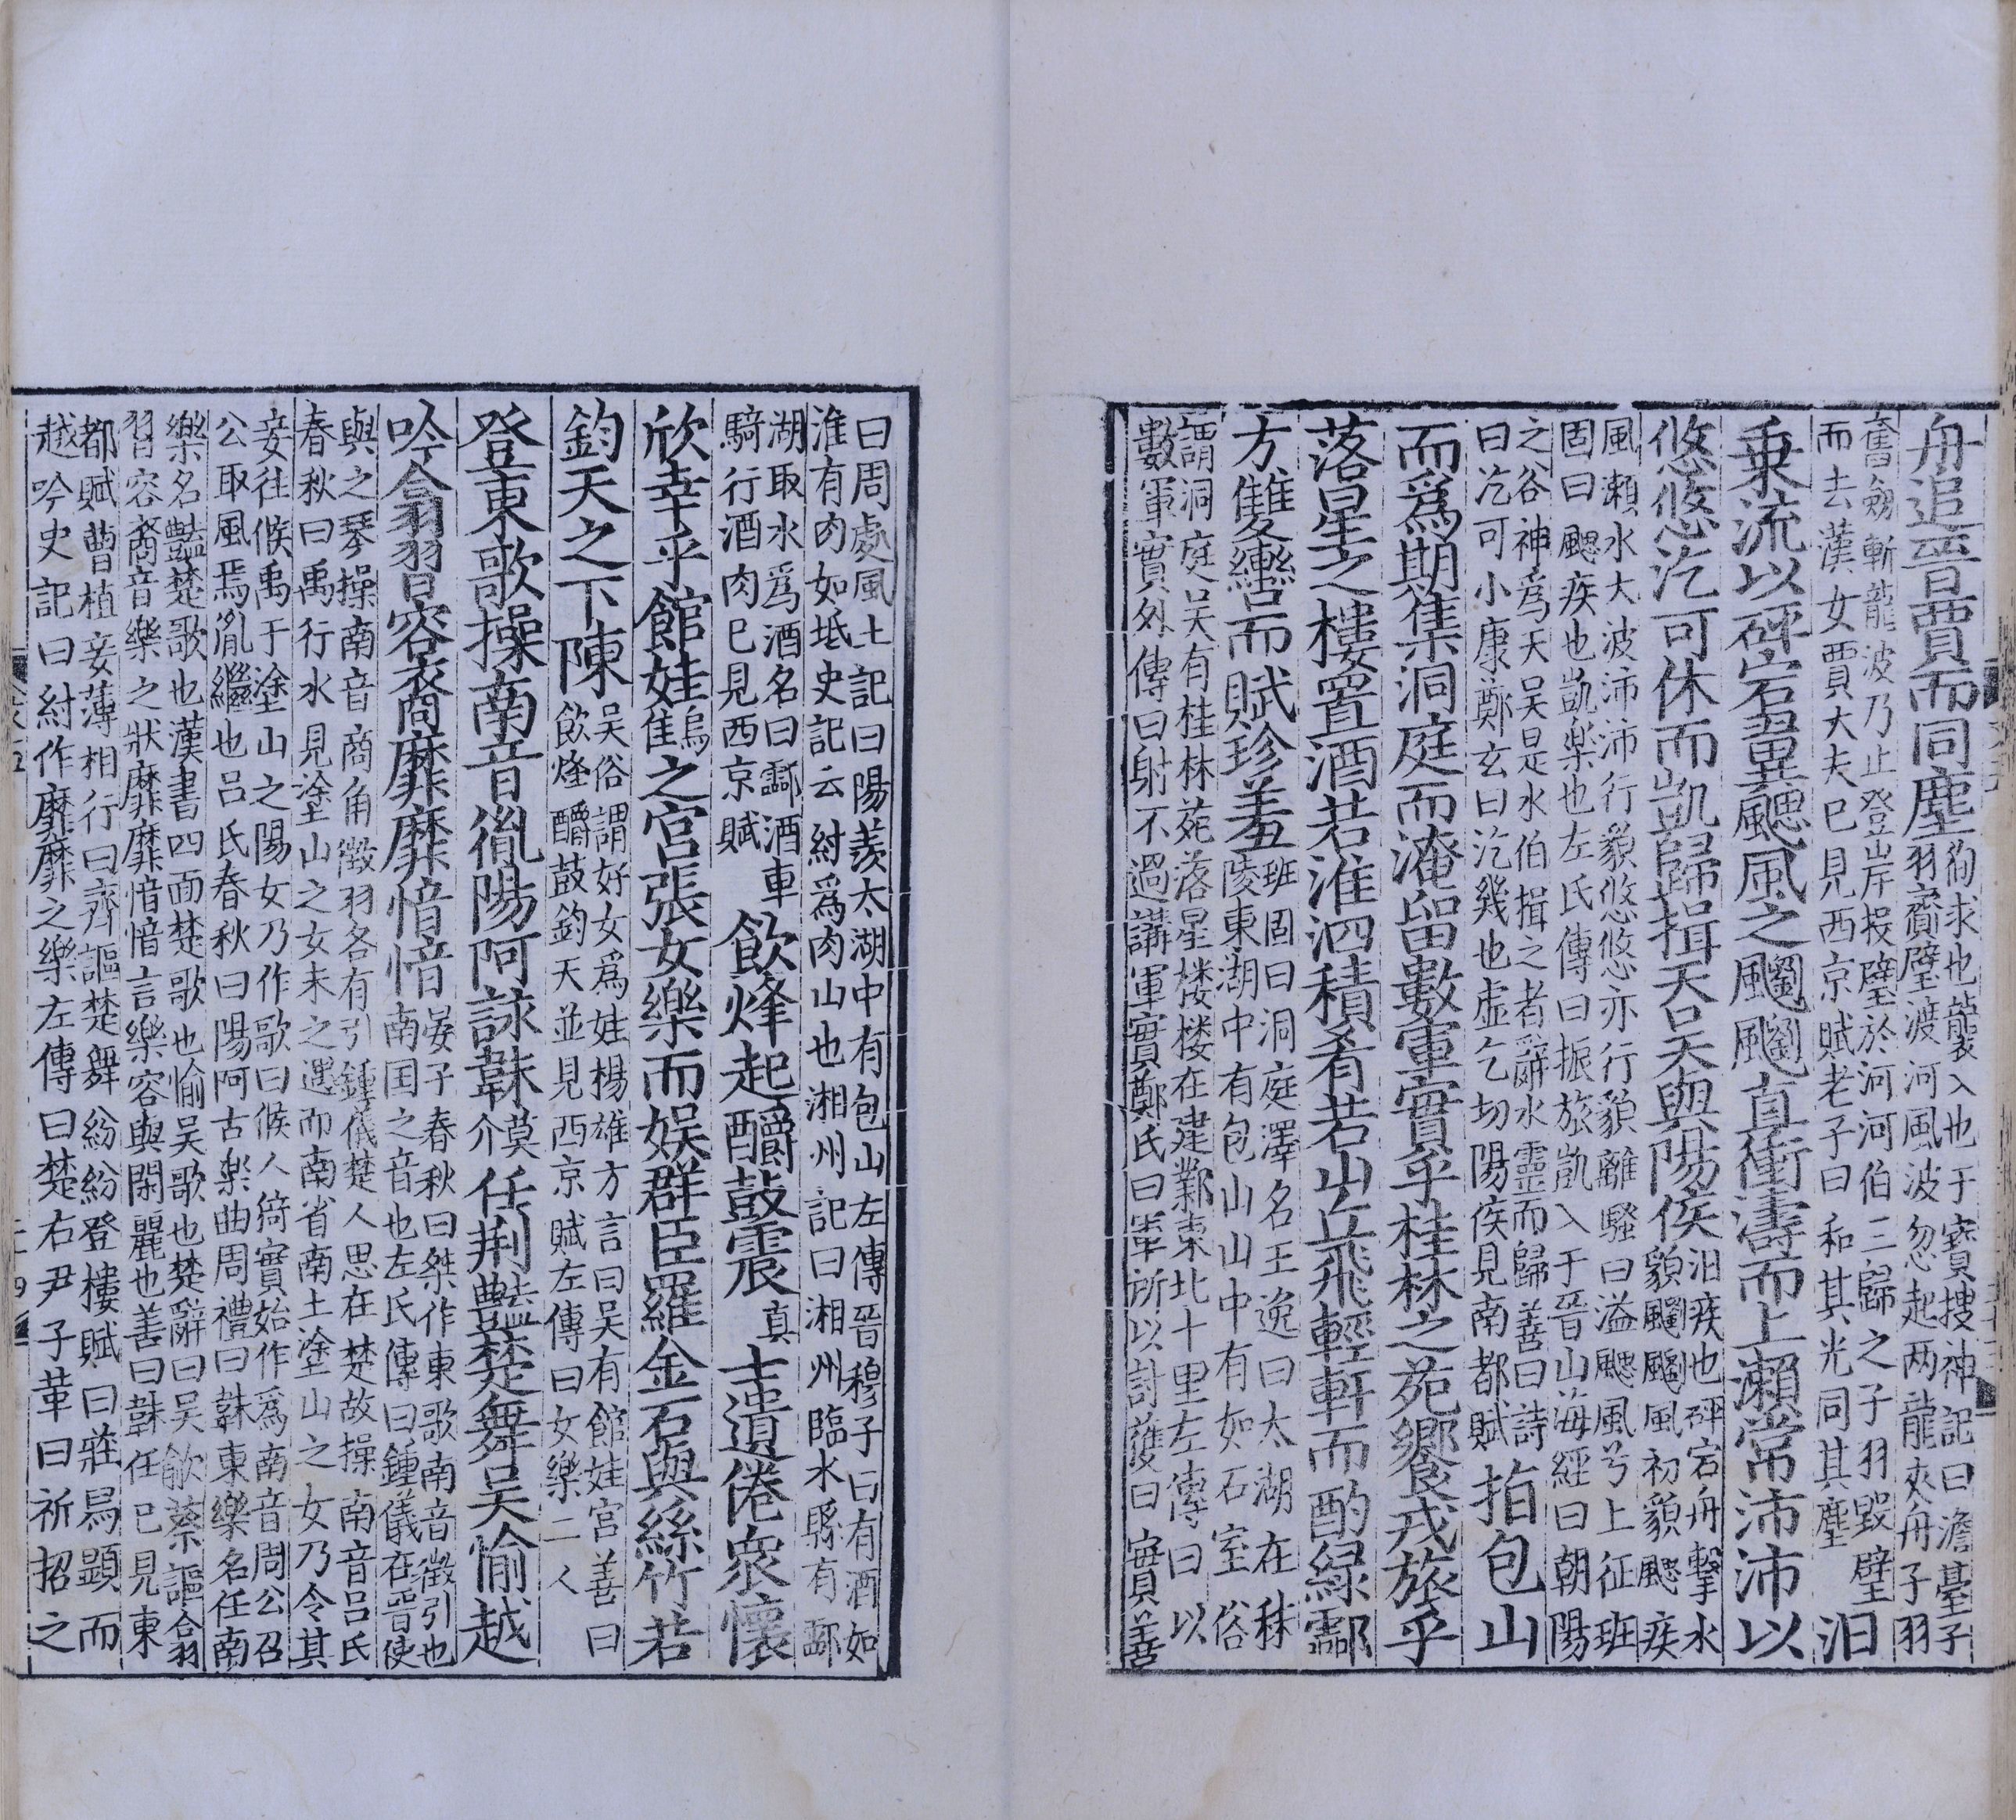 舟追晉賈而同塵徇求也襲入也于寳搜神記曰澹臺子
羽齎璧渡河風波忽起两龍夾舟子羽
奮劔斬龍波乃止登岸投璧於河河伯三歸之子羽毀璧
而去漢女賈大夫已見西京賦老子曰和其光同其塵
汨
乗流以砰宕翼颸風之䬟䬟直衝濤而上瀬常沛沛以
悠悠汔可休而凱歸揖天吳與陽侯汨疾也砰宕舟擊水
貌䬟䬟風初貌颸疾
風瀬水大波沛沛行貌悠悠亦行貌離騷曰溢颸風兮上征班
固曰颸疾也凱樂也左氏傳曰振旅凱入于晉山海經曰朝陽
之谷神爲天吳是水伯揖之者辭水靈而歸善曰詩
曰汔可小康鄭玄曰汔幾也虚乞切陽侯見南都賦
指包山
而爲期集洞庭而淹留數軍實乎桂林之苑饗戎旅乎
落星之樓置酒若淮泗積肴若山丘飛輕軒而酌緑酃
方雙轡而賦珍羞班固曰洞庭澤名王逸曰太湖在秣
陵東湖中有包山山中有如石室俗
謂洞庭吳有桂林苑落星楼楼在建鄴東北十里左傳曰以
數軍實外傳曰射不過講軍實鄭氏曰軍所以討獲曰實善
曰周處風土記曰陽羡太湖中有包山左傳晉穆子曰有酒如
淮有肉如坻史記云紂爲肉山也湘州記曰湘州臨水縣有酃
湖取水爲酒名曰酃酒車
騎行酒肉已見西京賦
飲烽起釂鼓震真士遺倦衆懷
欣幸乎館娃隹烏之宫張女樂而娱群臣羅金石與絲竹若
鈞天之下陳吳俗謂好女爲娃楊雄方言曰吳有館娃宫善曰
飲烽釂鼓鈞天並見西京賦左傳曰女樂二人
登東歌操南音胤陽阿詠韎莫介任荆豔楚舞吳愉越
吟翕習容裔靡靡愔愔晏子春秋曰桀作東歌南音徵引也
南国之音也左氏傳曰鍾儀在晉使
與之琴操南音商角徵羽各有引鍾儀楚人思在楚故操南音吕氏
春秋曰禹行水見塗山之女未之遇而南省南土塗山之女乃令其
妾往候禹于塗山之陽女乃作歌曰候人猗實始作爲南音周公召
公取風焉胤繼也吕氏春秋曰陽阿古樂曲周禮曰韎東樂名任南
樂名豔楚歌也漢書四面楚歌也愉吳歌也楚辭曰吳歈蔡謳翕
習容裔音樂之狀靡靡愔愔言樂容與閑麗也善曰韎任已見東
都賦曹植妾薄相行曰齊謳楚舞紛紛登樓賦曰莊舄顕而
越吟史記曰紂作靡靡之樂左傳曰楚右尹子革曰祈招之